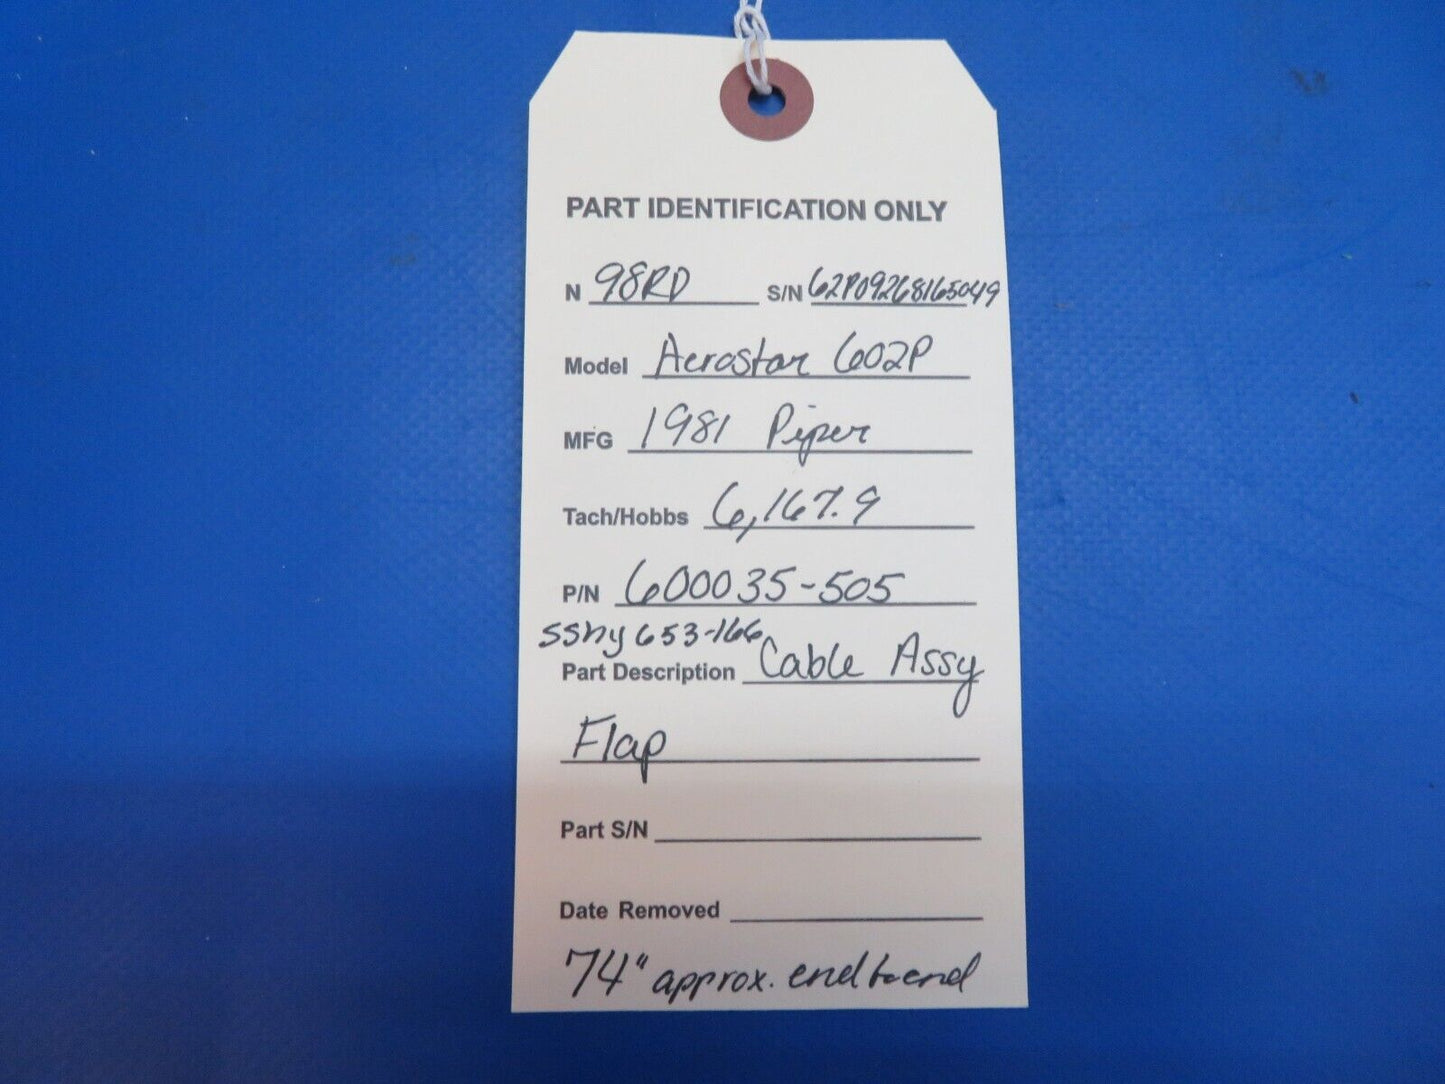 PART IDENTIFICATION ONLY
N 98RD S/N 62P09268165049
Model Aerostar 602P
MFG 1981 Piper
Tach/Hobbs 6,167.9
P/N 600035-505
653-166
Part Description Cable Assy
Flap
Part S/N
Date Removed
74" approx. end to end